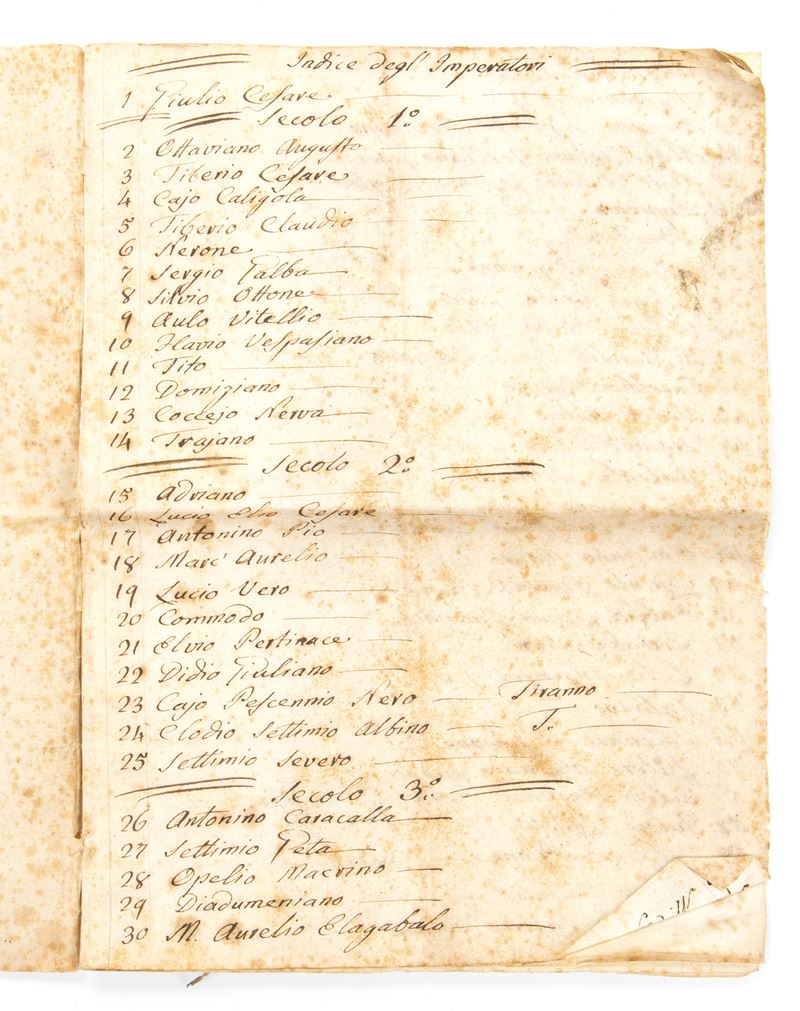 Indice degl' Imperatori
1 Giulio Cesare
Secolo 1º
2 Ottaviano Augusto
3 Tiberio Cesare
4 Cajo Caligola
5 Tiberio Claudio
6 Nerone
7 Sergio Galba
8 Silvio Ottone
9 Aulo Vitellio
10 Flavio Vespasiano
11 Tito
12 Domiziano
13 Coccejo Nerva
14 Trajano
Secolo 2º
15 Adriano
16 Lucio Elio Cesare
17 Antonino Pio
18 Marc' Aurelio
19 Lucio Vero
20 Commodo
21 Elvio Pertinace
22 Didio Giuliano
23 Cajo Pescennio Nero — Tiranno
24 Clodio Settimio Albino — T.
25 Settimio Severo
Secolo 3º
26 Antonino Caracalla
27 Settimio Geta
28 Opelio Macrino
29 Diadumeniano
30 M. Aurelio Elagabalo